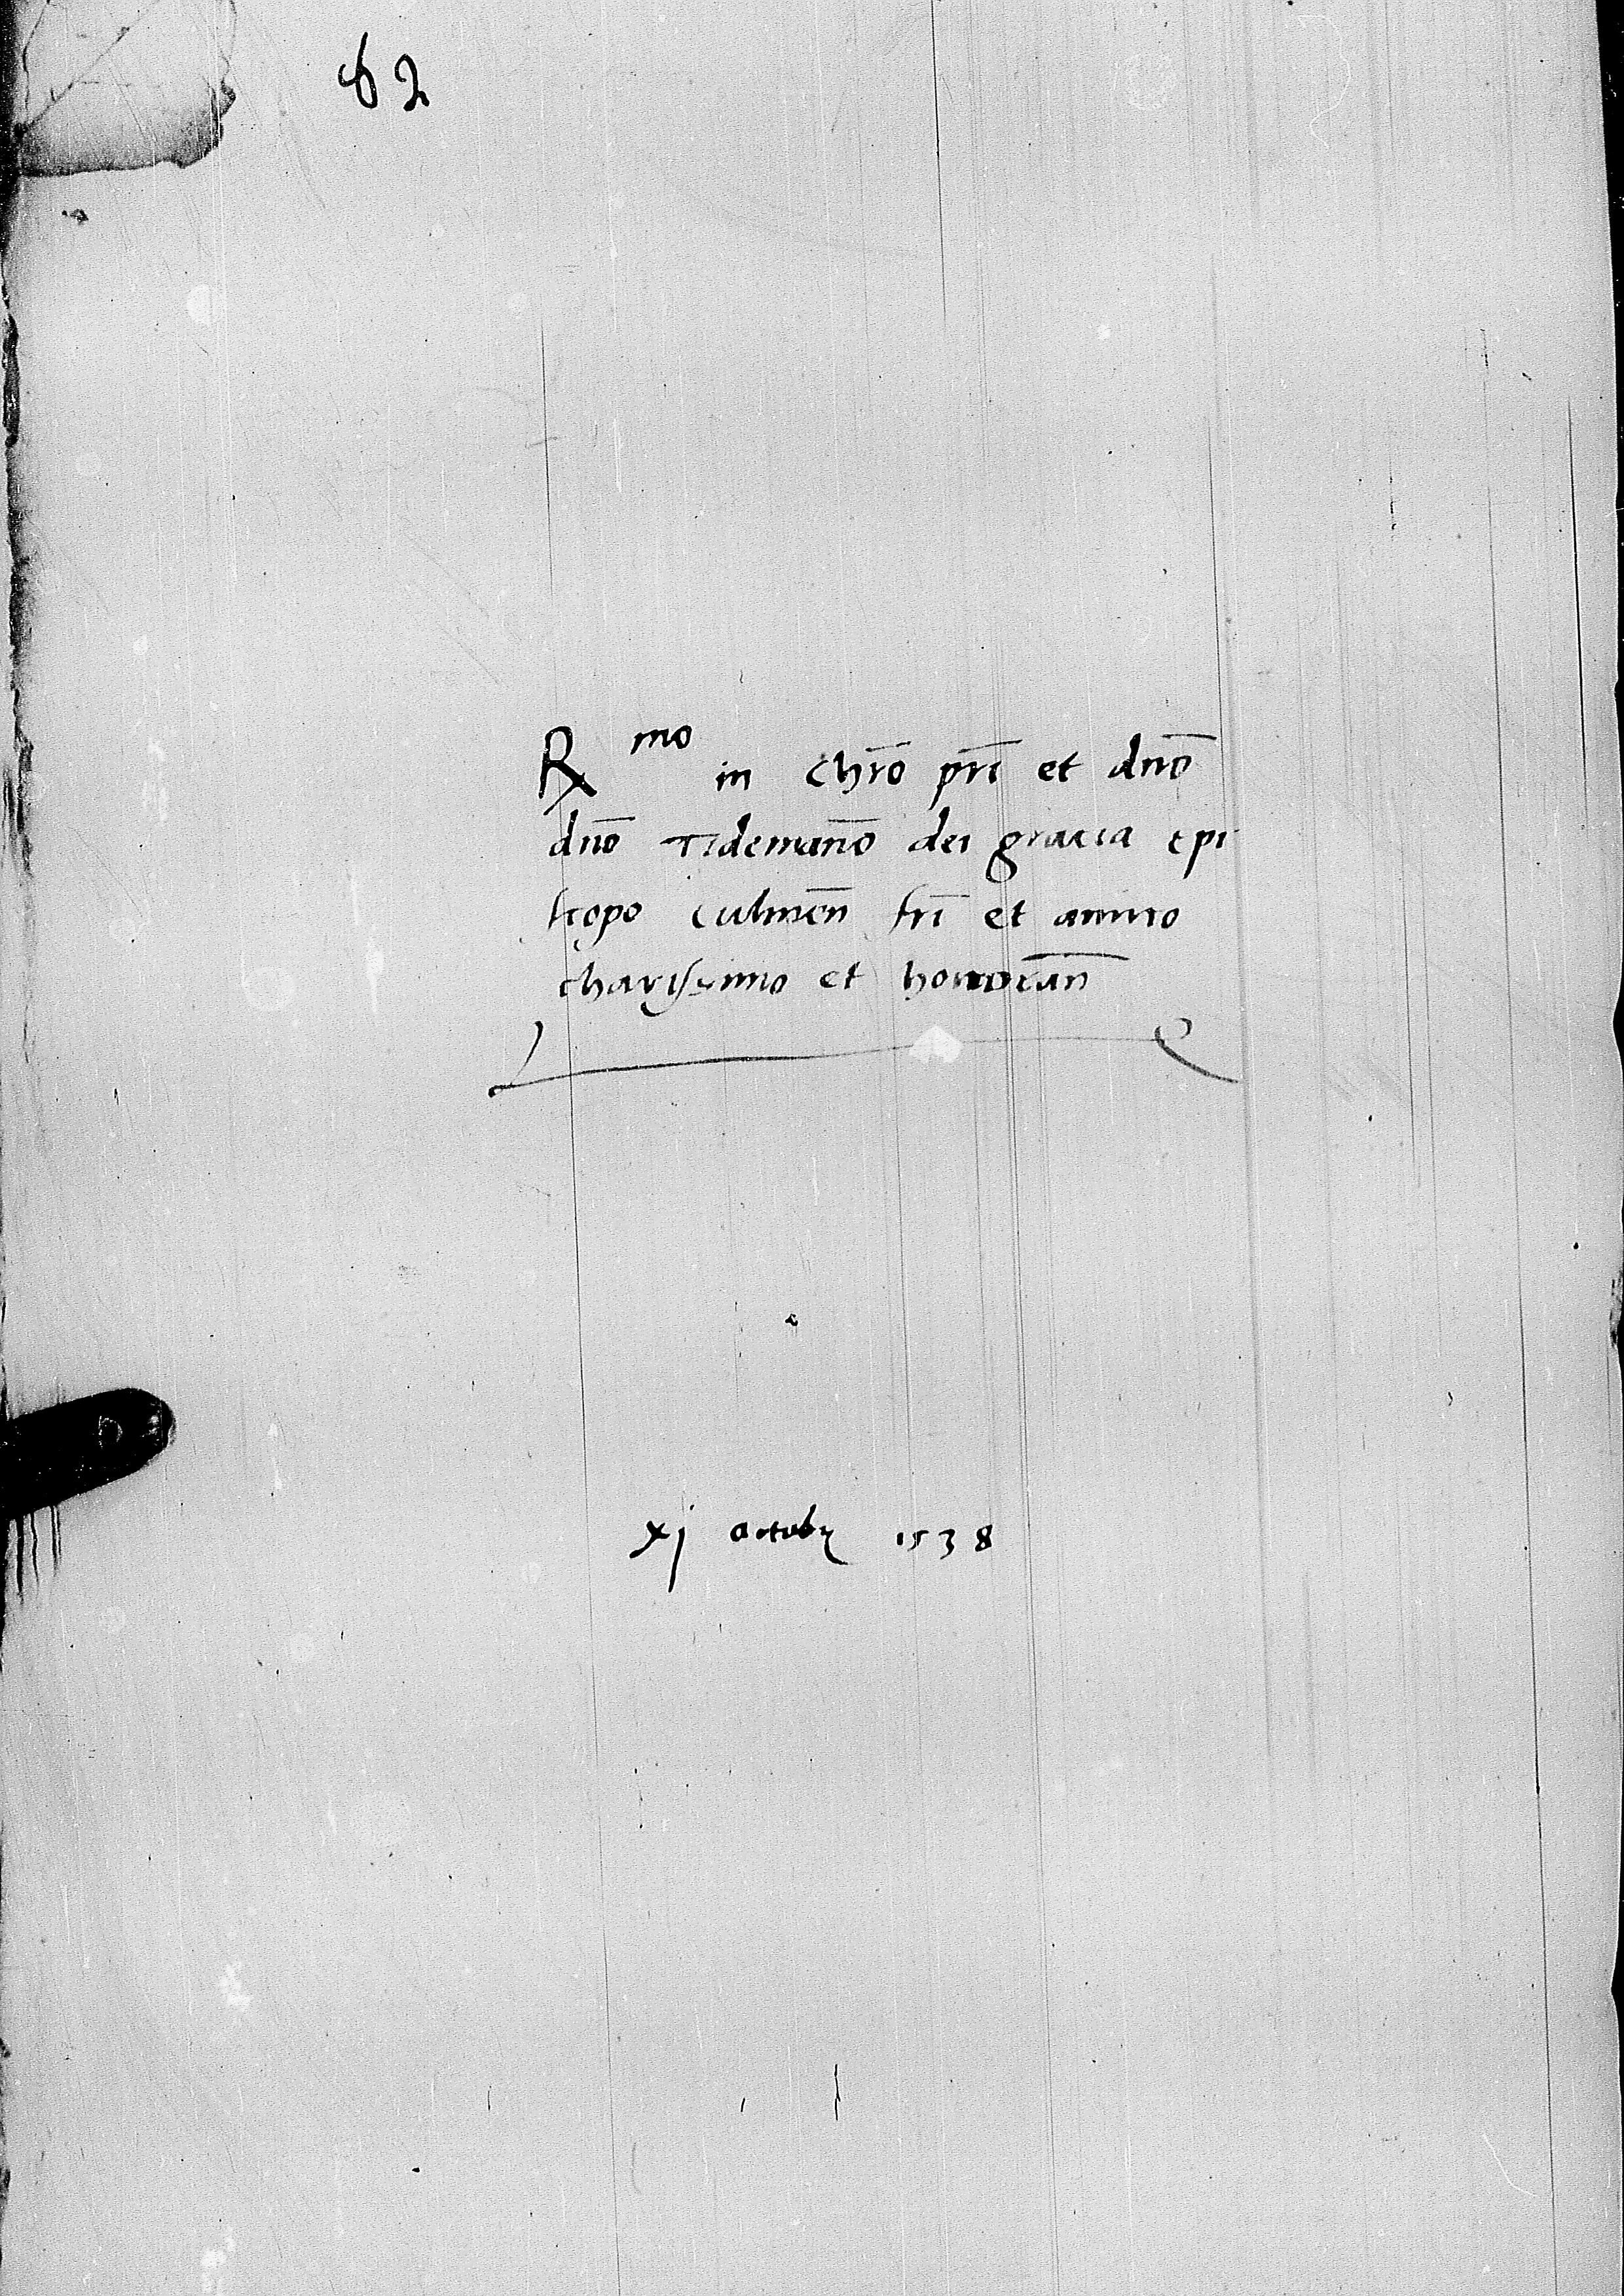 62
Rmo in Chro pri et dno
dno Tidemano dei gracia epi
scopo Culmen fri et amico
charissimo et honoran
xj Octobr 1538